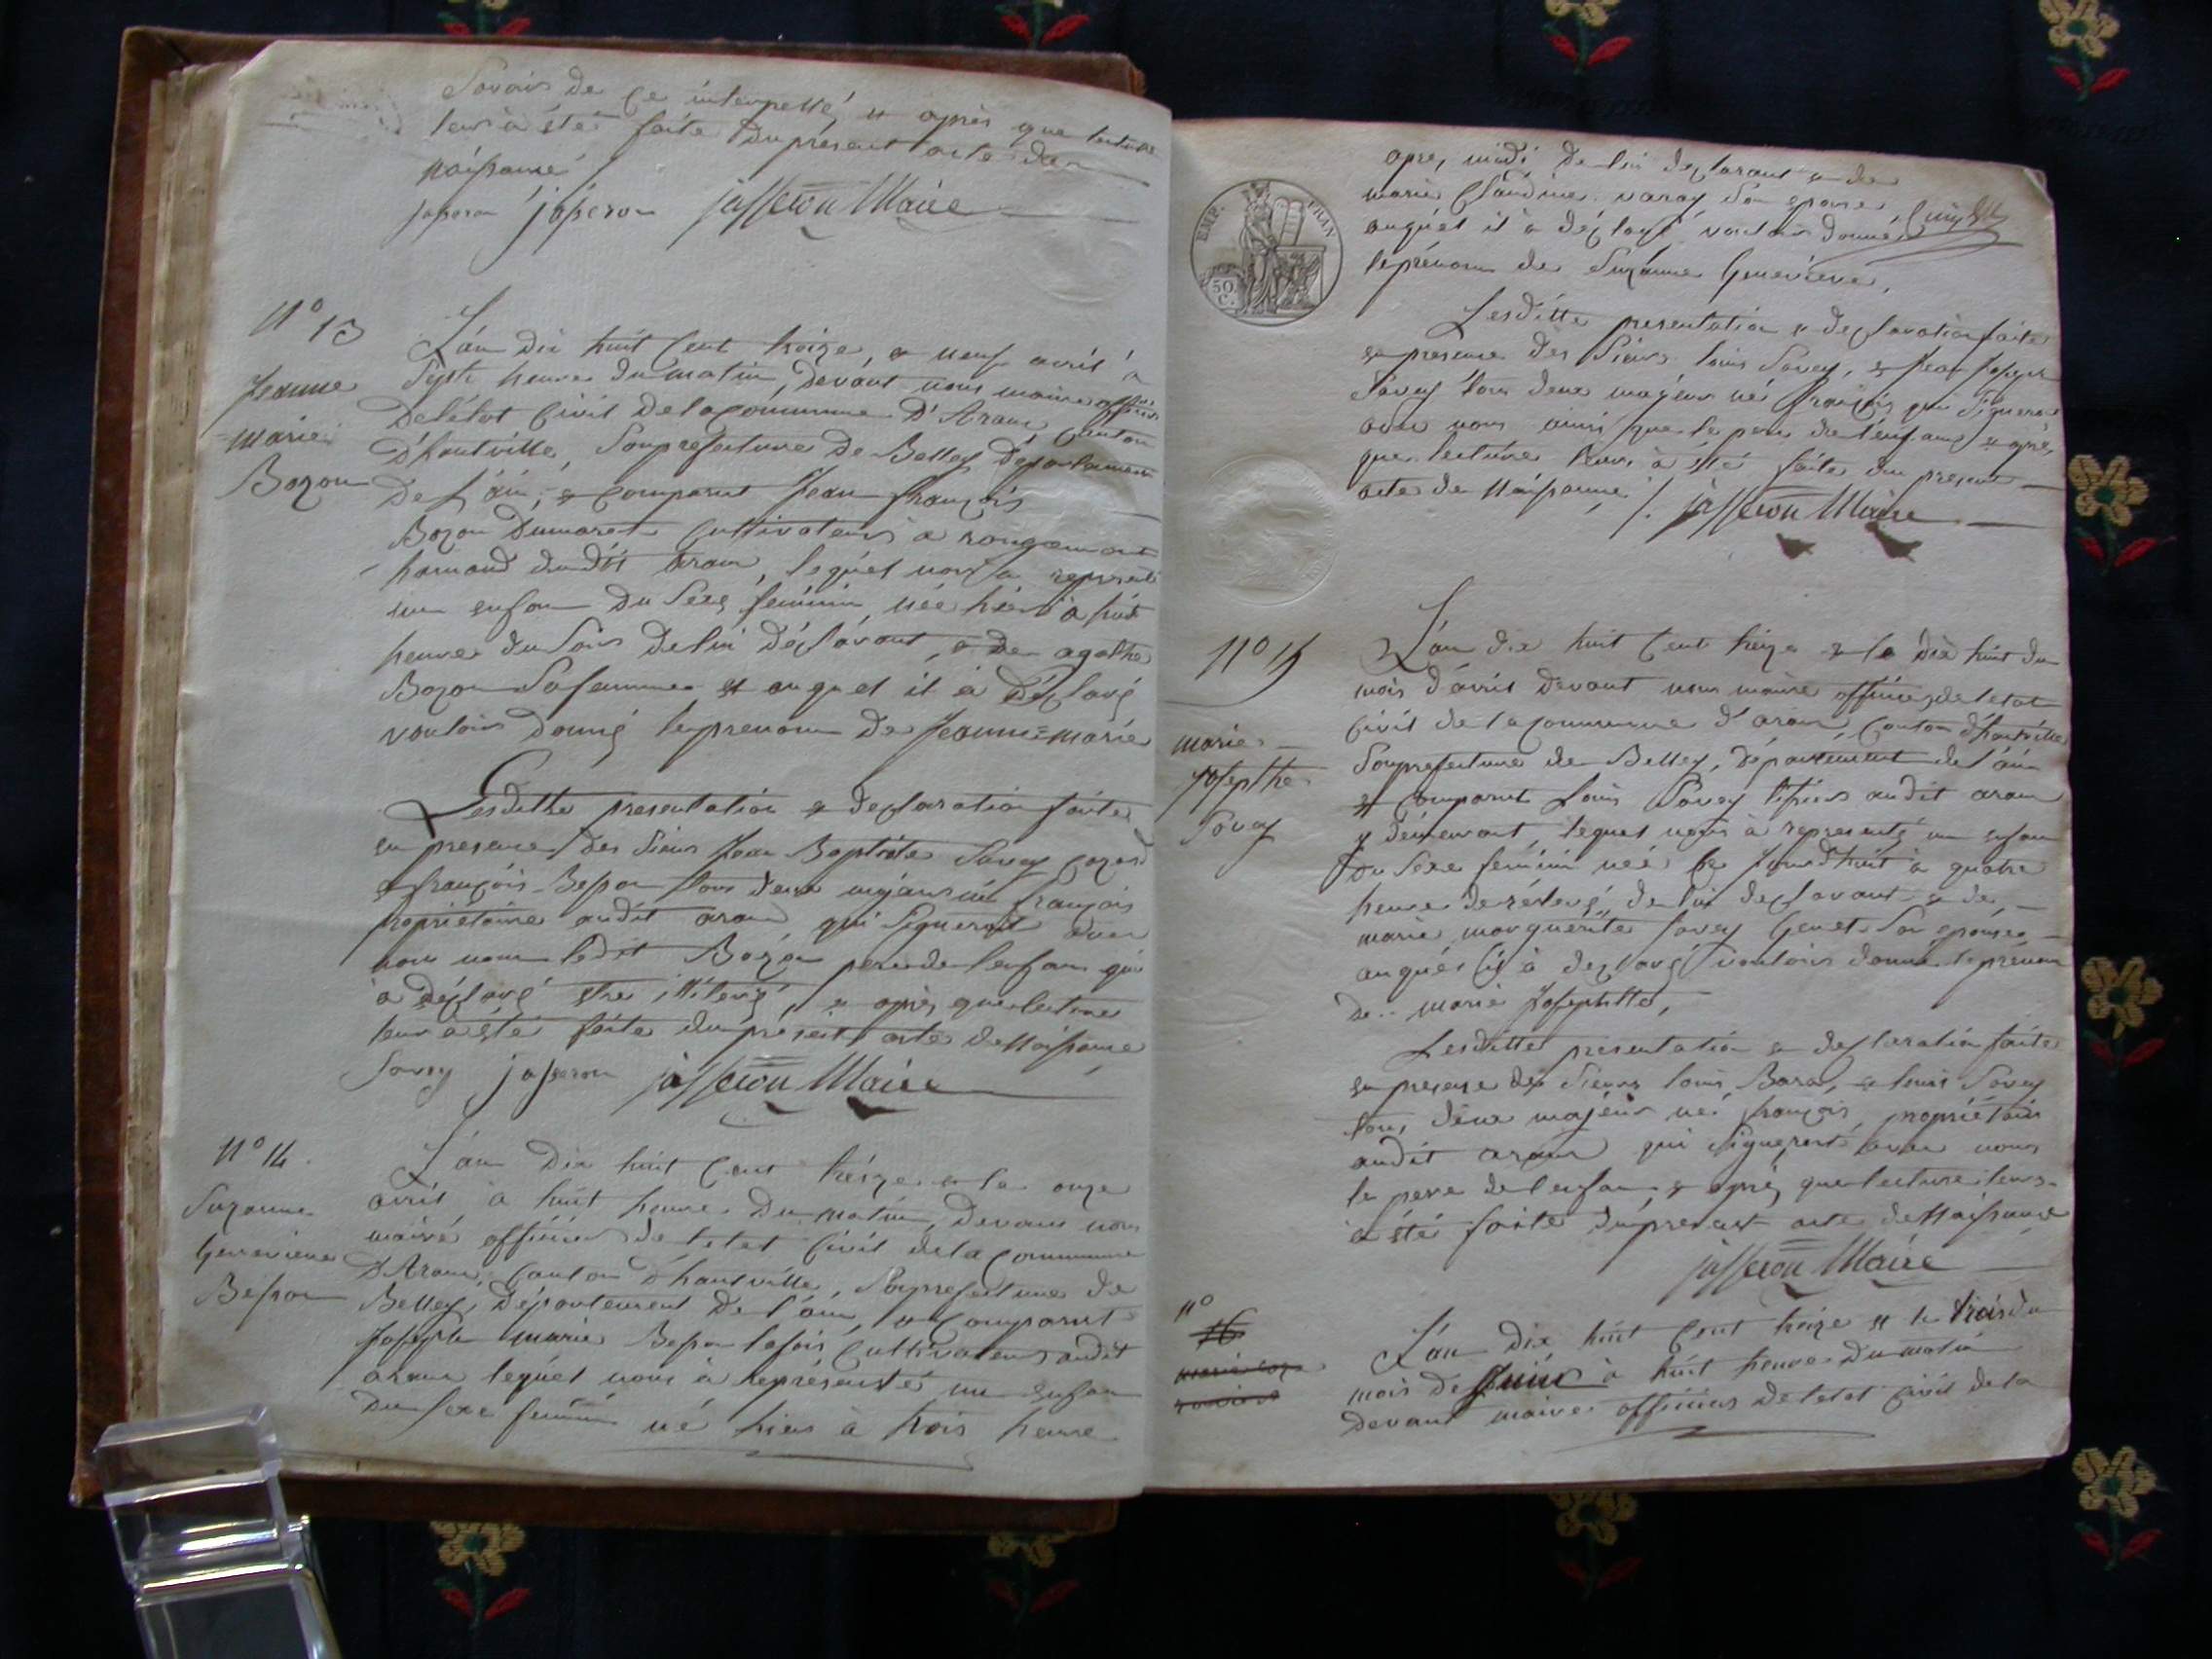 Savoir de ce interpellé, et après que lecture
leur à été faite du présent acte de
Naissance /
jasseron jasseron jasseron Maire
N° 13
Jeanne
marie
Bozon
L'an dix huit cent treize, et neuf avril à
Sept heure du matin, devant nous maire officier
de létat civil de la commune d'Aranc, canton
d'hautville, Souprefecture de Belley département
de l'ain, et comparut Jean françois
Bozon Dumaret Cultivateur a rougemont
hamand dudit aranc, lequel nous a représenté
un enfan du Séxe féminin, née hier à huit
heure du Soir de lui déclarant, et de agathe
Bozon Sa femme et auquel il à déclaré
vouloir donné le prenom de Jeanne=marie
Lesditte presentation et declaration faite
en presence des Sieurs Jean Baptiste Savey
et françois Besson tous deux majeurs né français
propriétaire audit aranc qui Signeront avec
nous ledit Bozon pere de lenfan qui
à déclaré être illiteré, et après que lecture
leur à été faite du présent acte de Naissance
Savey jasseron jasseron Maire
N° 14
Suzanne
Genevieve
Besson
L'an dix huit cent treize et le onze
avril à huit heure du matin, devant nous
maire officier de letat civil de la commune
d'Aranc, Canton d'hautville, Souprefecture de
Belley, département de l'ain, et Comparut
Joseph marie Besson Cultivateur audit
aranc lequel nous à représenté un enfan
du Sexe feminin né hier à trois heure
apres midi de lui declarant et de
marie Claudine varay Son epouse
auquel il à déclaré vouloir donner
le prénom de Suzanne Geneviève,
EMP. FRAN
50.
C.
Lesditte presentation et declaration faite
en presence des Sieurs louis Savey, et Jean Joseph
Savey tous deux majeurs né français qui Signeront
avec nous ainsi que le pere de l'enfant et apré,
que lecture leurs à été faite du présent
acte de Naissance /. jasseron Maire
N° 15
marie
Josephte
Savey
L'an dix huit cent treize et le dix huit du
mois d'avril devant nous maire officier de letat
civil de la commune d'aranc, canton d'hautville
Souprefecture de Belley, département de l'ain
et comparut louis Savey audit aranc
y demeurant, lequel nous à representé un enfan
du Sexe feminin née ce jourdhuit à quatre
heure de de lui declarant et de
marie marguerite Savey Son epouse
auquel il à déclaré vouloir donné le prénom
de marie Josephtte,
Lesditte présentation et declaration faite
en presence des Sieurs louis et louis Savey
tous deux majeur né français propriétair
audit aranc qui Signeront avec nous
le pere de lenfan et après que lecture leurs
à été faite du present acte de Naissance
jasseron Maire
N°
16
L'an dix huit cent treize et le trois du
mois de juin à huit heure du matin
devant maire officiers de letat civil de la